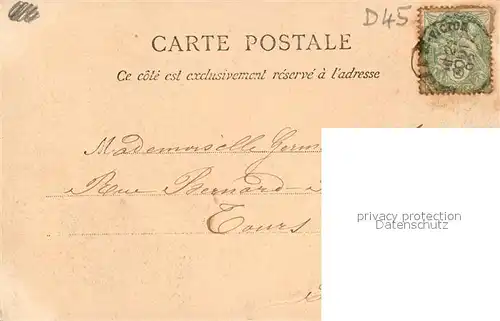 D45
CARTE POSTALE
Ce côté est exclusivement réservé à l'adresse
Mademoiselle Germ
Rue Bernard
Tours
privacy protection
Datenschutz